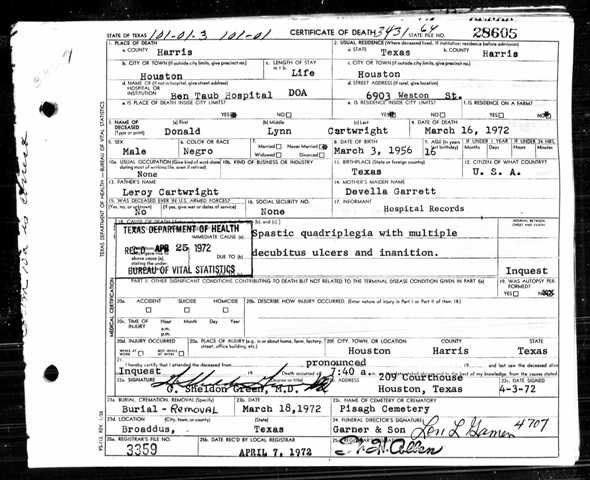 101-01.3 101-01 3431 64
STATE OF TEXAS CERTIFICATE OF DEATH STATE FILE NO. 28605
1. PLACE OF DEATH 2. USUAL RESIDENCE (Where deceased lived. If institution: residence before admission)
a. COUNTY Harris a. STATE Texas b. COUNTY Harris
b. CITY OR TOWN (If outside city limits, give precinct no.) c. LENGTH OF STAY in 1 b. c. CITY OR TOWN (If outside city limits, give precinct no.)
Houston Life Houston
d. NAME OF (If not in hospital, give street address) HOSPITAL OR INSTITUTION d. STREET ADDRESS (If rural, give location)
Ben Taub Hospital DOA 6903 Weston St.
e. IS PLACE OF DEATH INSIDE CITY LIMITS? e. IS RESIDENCE INSIDE CITY LIMITS? f. IS RESIDENCE ON A FARM?
YES NO YES NO YES NO
3. NAME OF DECEASED (Type or print) (a) First (b) Middle (c) Last 4. DATE OF DEATH
Donald Lynn Cartwright March 16, 1972
5. SEX 6. COLOR OR RACE 7. Married Never Married Widowed Divorced 8. DATE OF BIRTH 9. AGE (In years last birthday) IF UNDER 1 YEAR Months Days IF UNDER 24 HRS. Hours Min.
Male Negro March 3, 1956 16
10a. USUAL OCCUPATION (Give kind of work done during most of working life, even if retired) 10b. KIND OF BUSINESS OR INDUSTRY 11. BIRTHPLACE (State or foreign country) 12. CITIZEN OF WHAT COUNTRY?
None Texas U. S. A.
13. FATHER'S NAME 14. MOTHER'S MAIDEN NAME
Leroy Cartwright Devella Garrett
15. WAS DECEASED EVER IN U.S. ARMED FORCES? 16. SOCIAL SECURITY NO. 17. INFORMANT
(Yes, no, or unknown) (If yes, give war or dates of service)
No None Hospital Records
18. CAUSE OF DEATH INTERVAL BETWEEN ONSET AND DEATH
TEXAS DEPARTMENT OF HEALTH
IMMEDIATE CAUSE (a) Spastic quadriplegia with multiple
REC'D APR 25 1972
DUE TO (b) decubitus ulcers and inanition.
BUREAU OF VITAL STATISTICS Inquest
PART II. OTHER SIGNIFICANT CONDITIONS, CONTRIBUTING TO DEATH BUT NOT RELATED TO THE TERMINAL DISEASE CONDITION GIVEN IN PART I(a) 19. WAS AUTOPSY PERFORMED?
YES NO
20a. ACCIDENT SUICIDE HOMICIDE 20b. DESCRIBE HOW INJURY OCCURRED. (Enter nature of injury in Part I or Part II of item 18.)
20c. TIME OF INJURY Hour Month Day Year
a.m.
p.m.
20d. INJURY OCCURRED 20e. PLACE OF INJURY (e.g. in or about home, farm, factory, street, office building, etc.) 20f. CITY, TOWN, OR LOCATION COUNTY STATE
WHILE AT WORK NOT WHILE AT WORK Houston Harris Texas
21. I hereby certify that I attended the deceased from pronounced
Inquest 19 Death occurred at 7:40 a.
22a. SIGNATURE (Degree or title) 22b. ADDRESS 209 Courthouse 22c. DATE SIGNED
Sheldon Green, M.D. Houston, Texas 4-3-72
23a. BURIAL, CREMATION, REMOVAL (Specify) 23b. DATE 23c. NAME OF CEMETERY OR CREMATORY
Burial - Removal March 18, 1972 Pisagh Cemetery
23d. LOCATION (City, town, or county) (State) 24. FUNERAL DIRECTOR'S SIGNATURE
Broaddus, Texas Garner & Son 4707
25a. REGISTRAR'S FILE NO. 25b. DATE REC'D BY LOCAL REGISTRAR
3359 APRIL 7, 1972
TEXAS DEPARTMENT OF HEALTH — BUREAU OF VITAL STATISTICS
MEDICAL CERTIFICATION